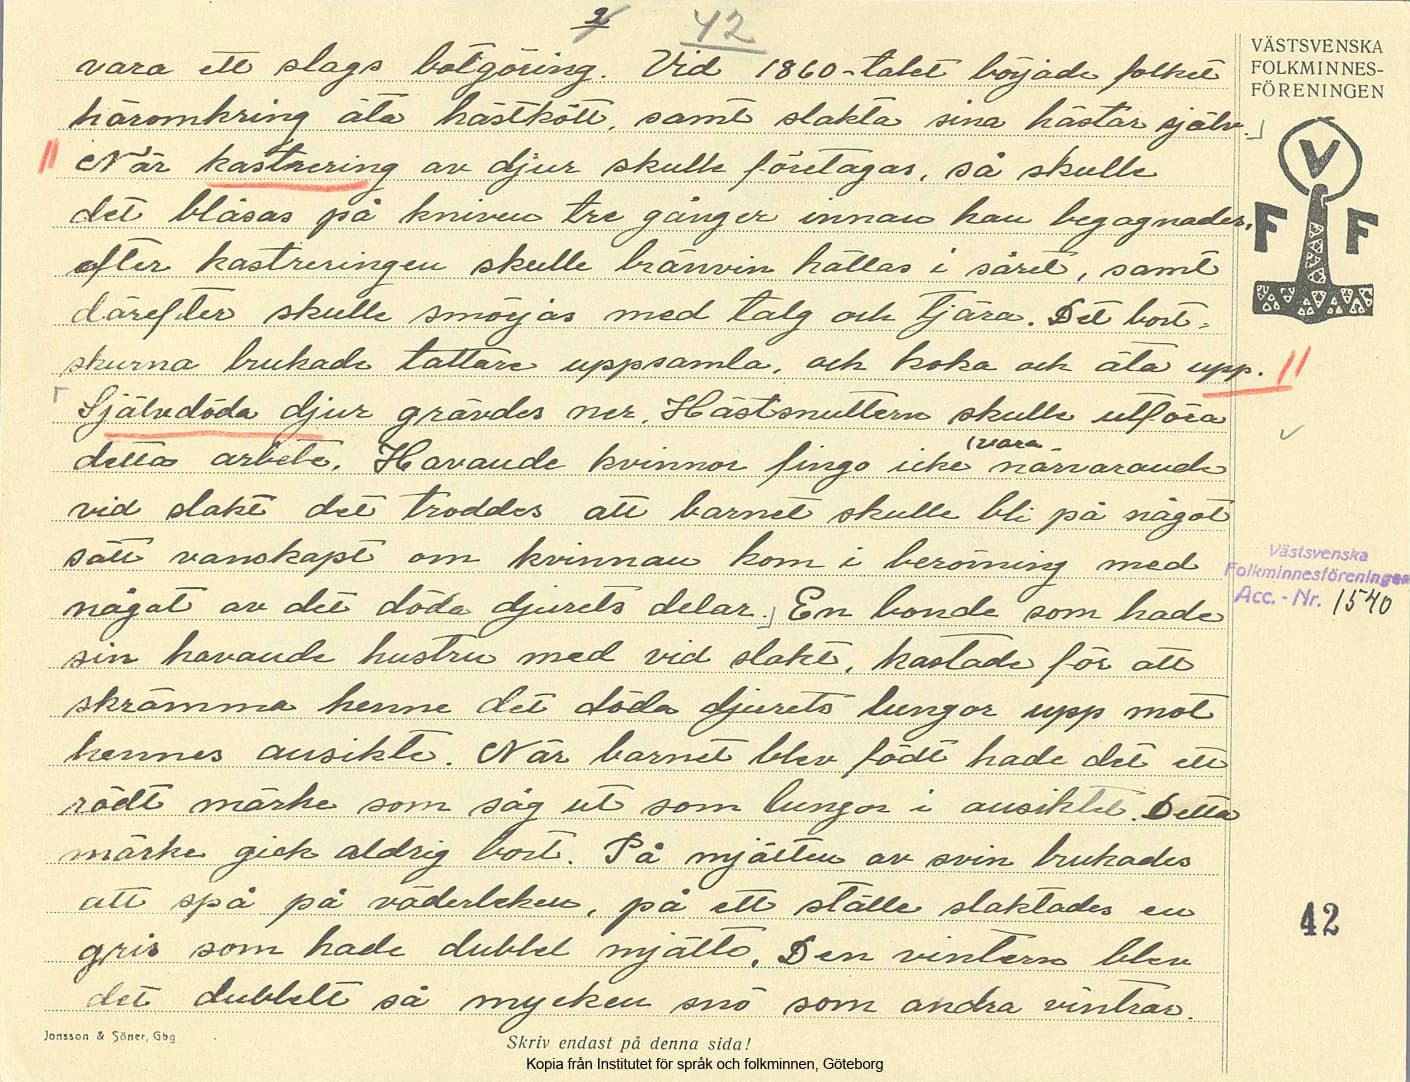 2
42
VÄSTSVENSKA
FOLKMINNES-
FÖRENINGEN
V
F F
vara ett slags botgöring. Vid 1860-talet började folket
häromkring äta hästkött, samt slakta sina hästar själv.
När kastrering av djur skulle företagas, så skulle
det blåsas på kniven tre gånger innan han begagnades,
efter kastreringen skulle bränvin hällas i såret, samt
därefter skulle smörjas med talg och tjära. Det bort-
skurna brukade tattare uppsamla, och koka och äta upp.
Självdöda djur grävdes ner. Hästsnuttern skulle utföra
detta arbete. Havande kvinnor fingo icke närvarande
vara
vid slakt det troddes att barnet skulle bli på något
sätt vanskapt om kvinnan kom i beröring med
något av det döda djurets delar. En bonde som hade
sin havande hustru med vid slakt, kastade för att
skrämma henne det döda djurets lungor upp mot
hennes ansikte. När barnet blev födt hade det ett
rödt märke som såg ut som lungor i ansiktet. Detta
märke gick aldrig bort. På mjälten av svin brukades
att spå på väderleken, på ett ställe slaktades en
gris som hade dubbel mjälte. Den vintern blev
det dubbelt så mycken snö som andra vintrar.
Västsvenska
Folkminnesföreningen
Acc.-Nr. 1540
42
Jonsson & Söner, Gbg
Skriv endast på denna sida!
Kopia från Institutet för språk och folkminnen, Göteborg